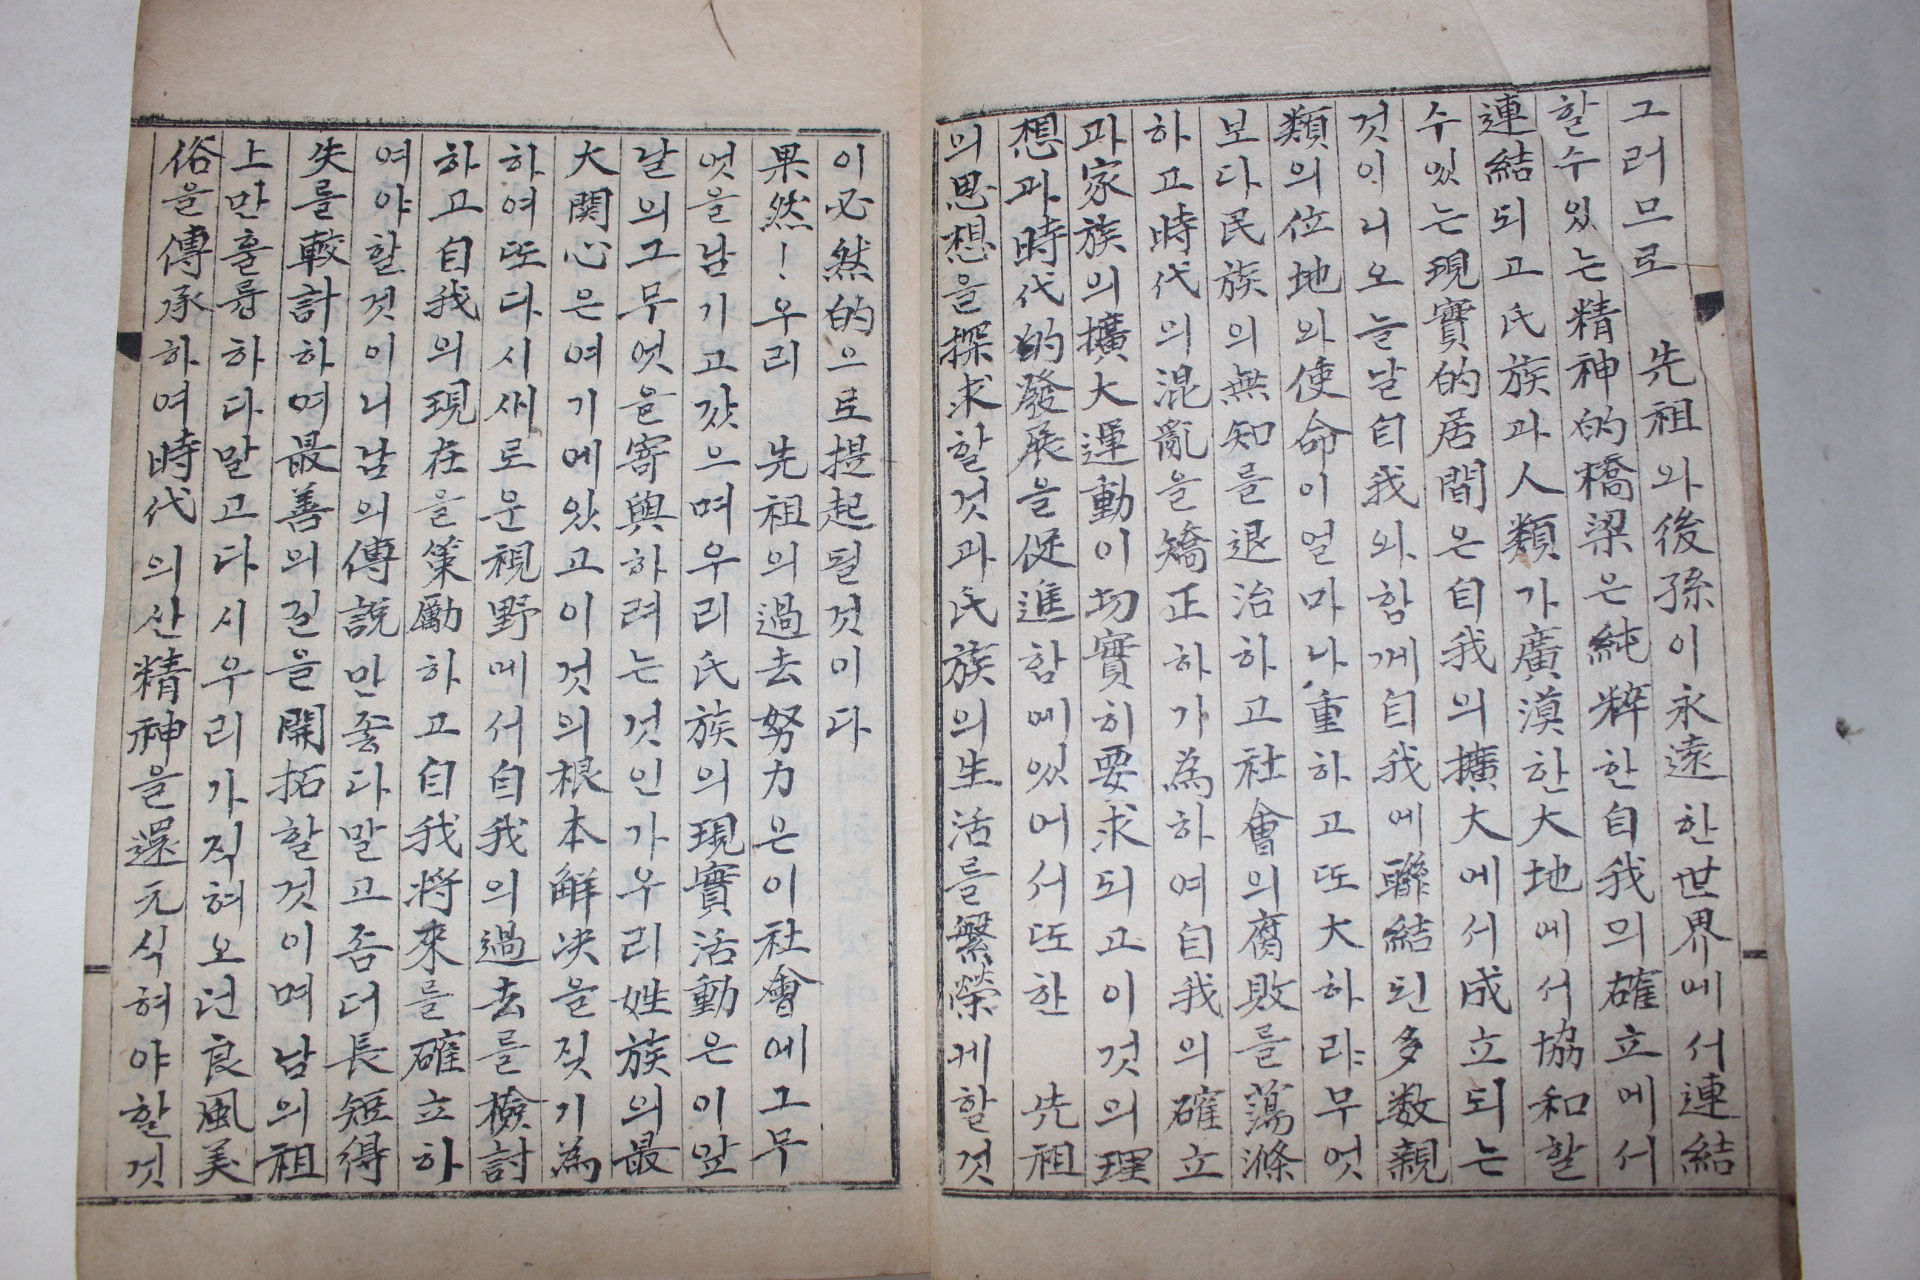 그러므로 先祖와後孫이永遠한世界에서連結
할수있는精神的橋梁은純粹한自我의確立에서
連結되고氏族과人類가廣漠한大地에서協和할
수있는現實的居間은自我의擴大에서成立되는
것이니오늘날自我와함께自我에聯結된多数親
類의位地와使命이얼마나重하고또大하랴무엇
보다民族의無知를退治하고社會의腐敗를蕩滌
하고時代의混亂을矯正하가為하여自我의確立
과家族의擴大運動이切實히要求되고이것의理
想과時代的發展을促進함에있어서또한 先祖
의思想을探求할것과氏族의生活를繁榮케할것
이必然的으로提起될것이다
果然!우리 先祖의過去努力은이社會에그무
엇을남기고갔으며우리氏族의現實活動은이앞
날의그무엇을寄與하려는것인가우리姓族의最
大関心은여기에있고이것의根本解决을짓기為
하여또다시새로운視野에서自我의過去를檢討
하고自我의現在을策勵하고自我將來를確立하
여야할것이니남의傳說만좋다말고좀더長短得
失를較計하여最善의길을開拓할것이며남의祖
上만훌륭하다말고다시우리가직혀오던良風美
俗을傳承하여時代의산精神을還元식혀야할것